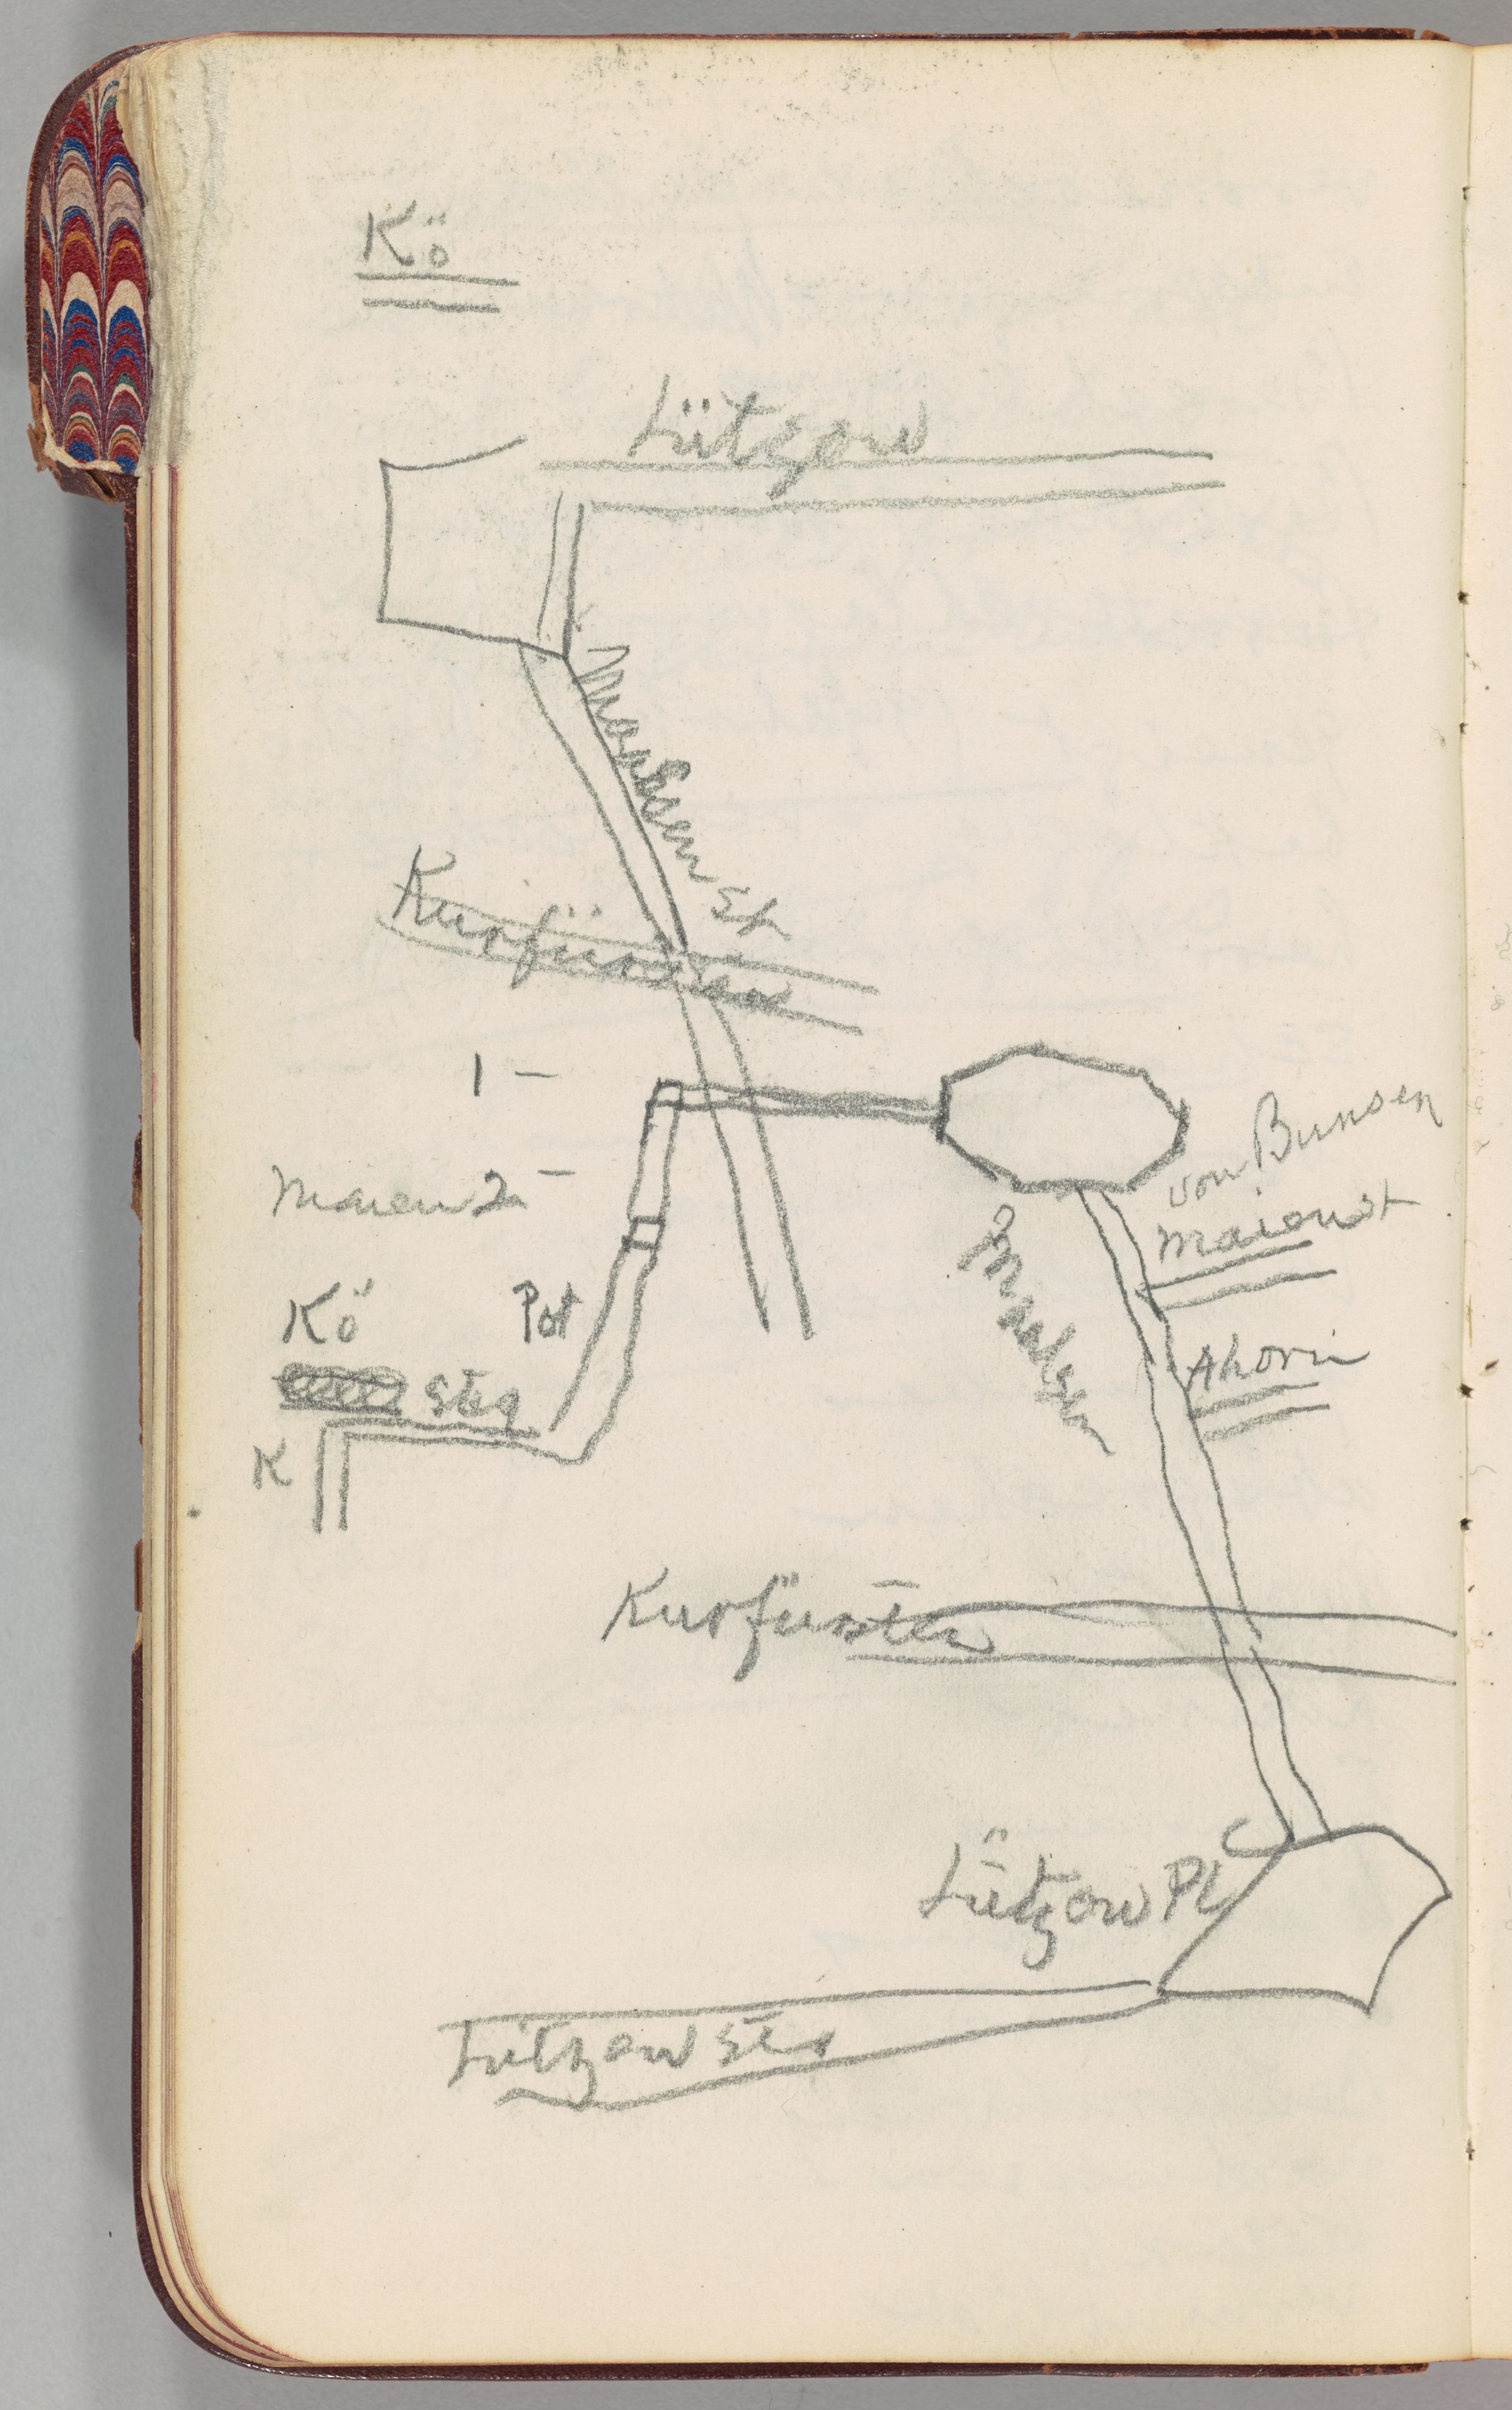 Kö
Lützow
Maassen St
Kurfürsten
1 -
von Bunsen
Maien 2 -
Maienst
Kö
Pot
Ahorn
Maassen
Steg
K
Kurfürsten
Lützow Pl
Lützow Str